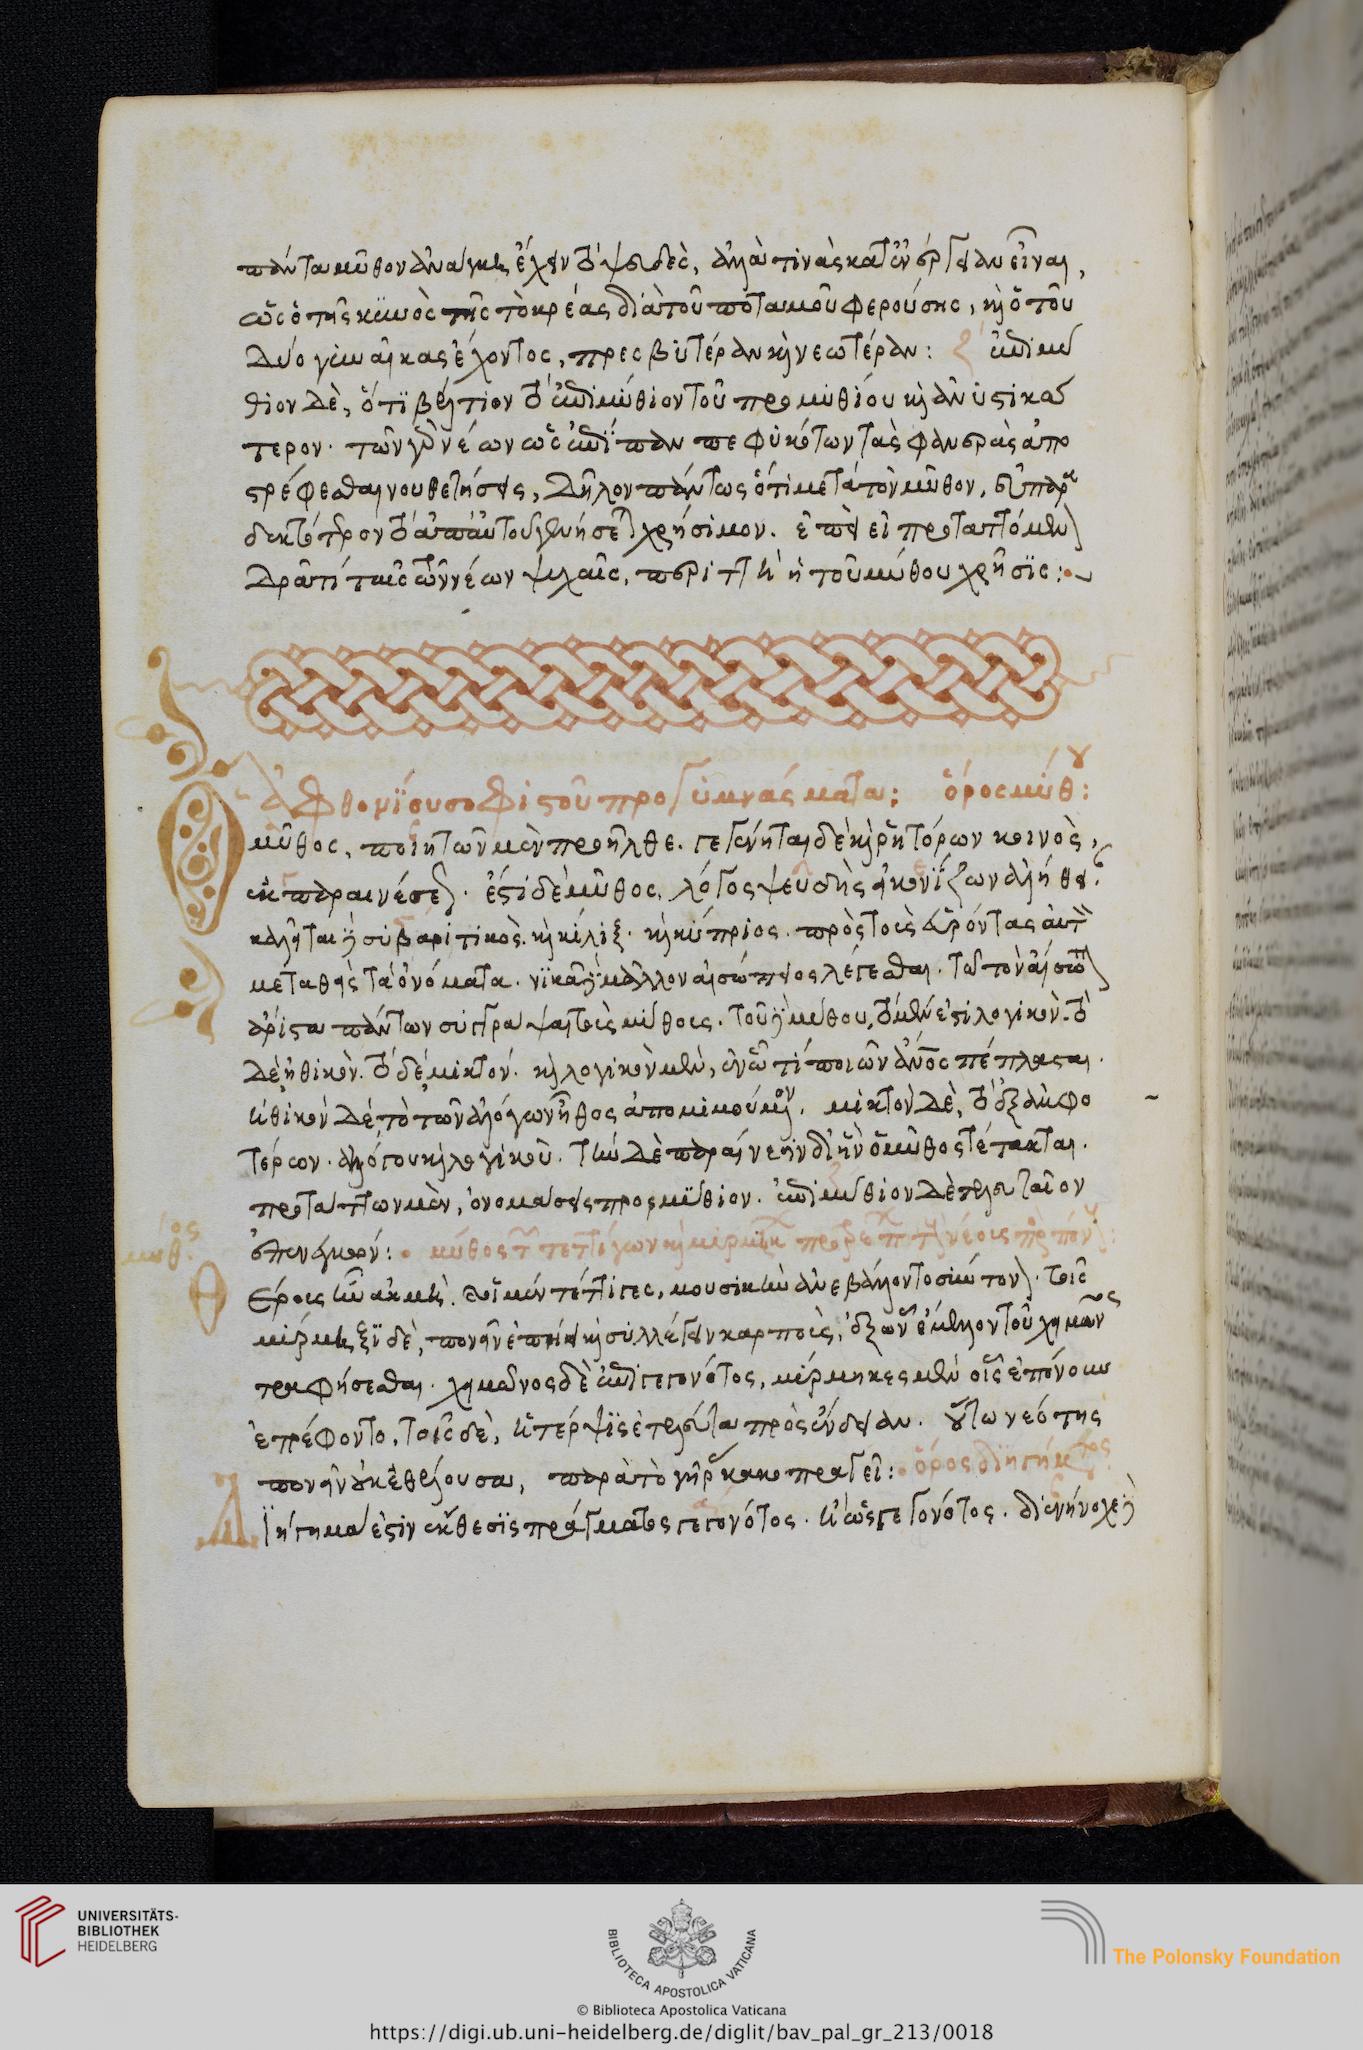 πάντα μῦθον ἀνάγκη ἔχειν τὸ ψευδὲς, ἀλλὰ τινὰς κατ' ἐνέργειαν εἶναι,
ὡς ὁ τῆς κυνὸς τῆς τὸ κρέας διὰ τοῦ ποταμοῦ φερούσης, καὶ ὁ τοῦ
δύο γυναῖκας ἔχοντος, πρεσβυτέραν καὶ νεωτέραν: ἐπιμύ
θιον δὲ, ὅτι βέλτιον τὸ ἐπιμύθιον τοῦ προμυθίου καὶ ἀνυστικώ
τερον. τῶν γὰρ νέων ὡς ἐπίπαν πεφυκότων τὰς φανερὰς ἀπο
στρέφεσθαι νουθετήσεις, δῆλον πάντως ὅτι μετὰ τὸν μῦθον, εὐπαρα
δεκτότερον τὸ ἀπ' αὐτοῦ γεννήσεται χρήσιμον. ἐπεὶ εἰ προταττόμενον
δρᾶ τι ταῖς τῶν νέων ψυχαῖς, περιττὴ ἡ τοῦ μύθου χρῆσις:
Ἀφθονίου σοφιστοῦ προγυμνάσματα: ὅρος μύθου:
Ὁ μῦθος, ποιητῶν μὲν προῆλθε. γεγένηται δὲ καὶ ῥητόρων κοινὸς,
ἐκ παραινέσεως. ἔστι δὲ μῦθος, λόγος ψευδὴς εἰκονίζων ἀλήθειαν.
καλεῖται δὲ συβαριτικὸς. καὶ κίλιξ. καὶ κύπριος. πρὸς τοὺς εὑρόντας αὐτοῦ
μεταθεὶς τὰ ὀνόματα. νικᾶ δὲ μᾶλλον αἰσώπειος λέγεσθαι. τῷ τὸν αἴσωπον
ἄριστα πάντων συγγράψαι τοὺς μύθους. τοῦ δὲ μύθου, τὸ μέν ἐστι λογικὸν. τὸ
δὲ ἠθικὸν. τὸ δὲ μικτόν. καὶ λογικὸν μὲν, ἐν ᾧ τι ποιῶν ἄνθρωπος πέπλασται.
ἠθικὸν δὲ, τὸ τῶν ἀλόγων ἦθος ἀπομιμούμενον. μικτὸν δὲ, τὸ ἐξ ἀμφο
τέρων. ἀλόγου καὶ λογικοῦ. τὴν δὲ παραίνεσιν δι' ἣν ὁ μῦθος τέτακται.
προτάττων μὲν, ὀνομάσεις προμύθιον. ἐπιμύθιον δὲ τελευταῖον
ἐπενεγκών: μῦθος ὁ τῶν τεττίγων καὶ μυρμήκων προτρέπων τοὺς νέους πρὸς πόνους:
μῦθος
Θέρους ἦν ἀκμὴ. καὶ οἱ μὲν τέττιγες, μουσικὴν ἀνεβάλλοντο σύντονον. τοῖς
μύρμηξι δὲ, πονεῖν ἐπῄει καὶ συλλέγειν καρποὺς, ἐξ ὧν ἔμελλον τοῦ χειμῶνος
τραφήσεσθαι. χειμῶνος δὲ ἐπιγεγονότος, μύρμηκες μὲν οἷς ἐπόνουν
ἐτρέφοντο, τοῖς δὲ, ἡ τέρψις ἐτελεύτα πρὸς ἔνδειαν. οὕτω νεότης
πονεῖν οὐκ ἐθέλουσα, παρὰ τὸ γῆρας κακοπραγεῖ: ὅρος διηγήματος
Διήγημά ἐστιν ἔκθεσις πράγματος γεγονότος. ἢ ὡς γεγονότος. διενήνοχε δὲ
UNIVERSITÄTS-
BIBLIOTHEK
HEIDELBERG
BIBLIOTECA APOSTOLICA VATICANA
The Polonsky Foundation
© Biblioteca Apostolica Vaticana
https://digi.ub.uni-heidelberg.de/diglit/bav_pal_gr_213/0018